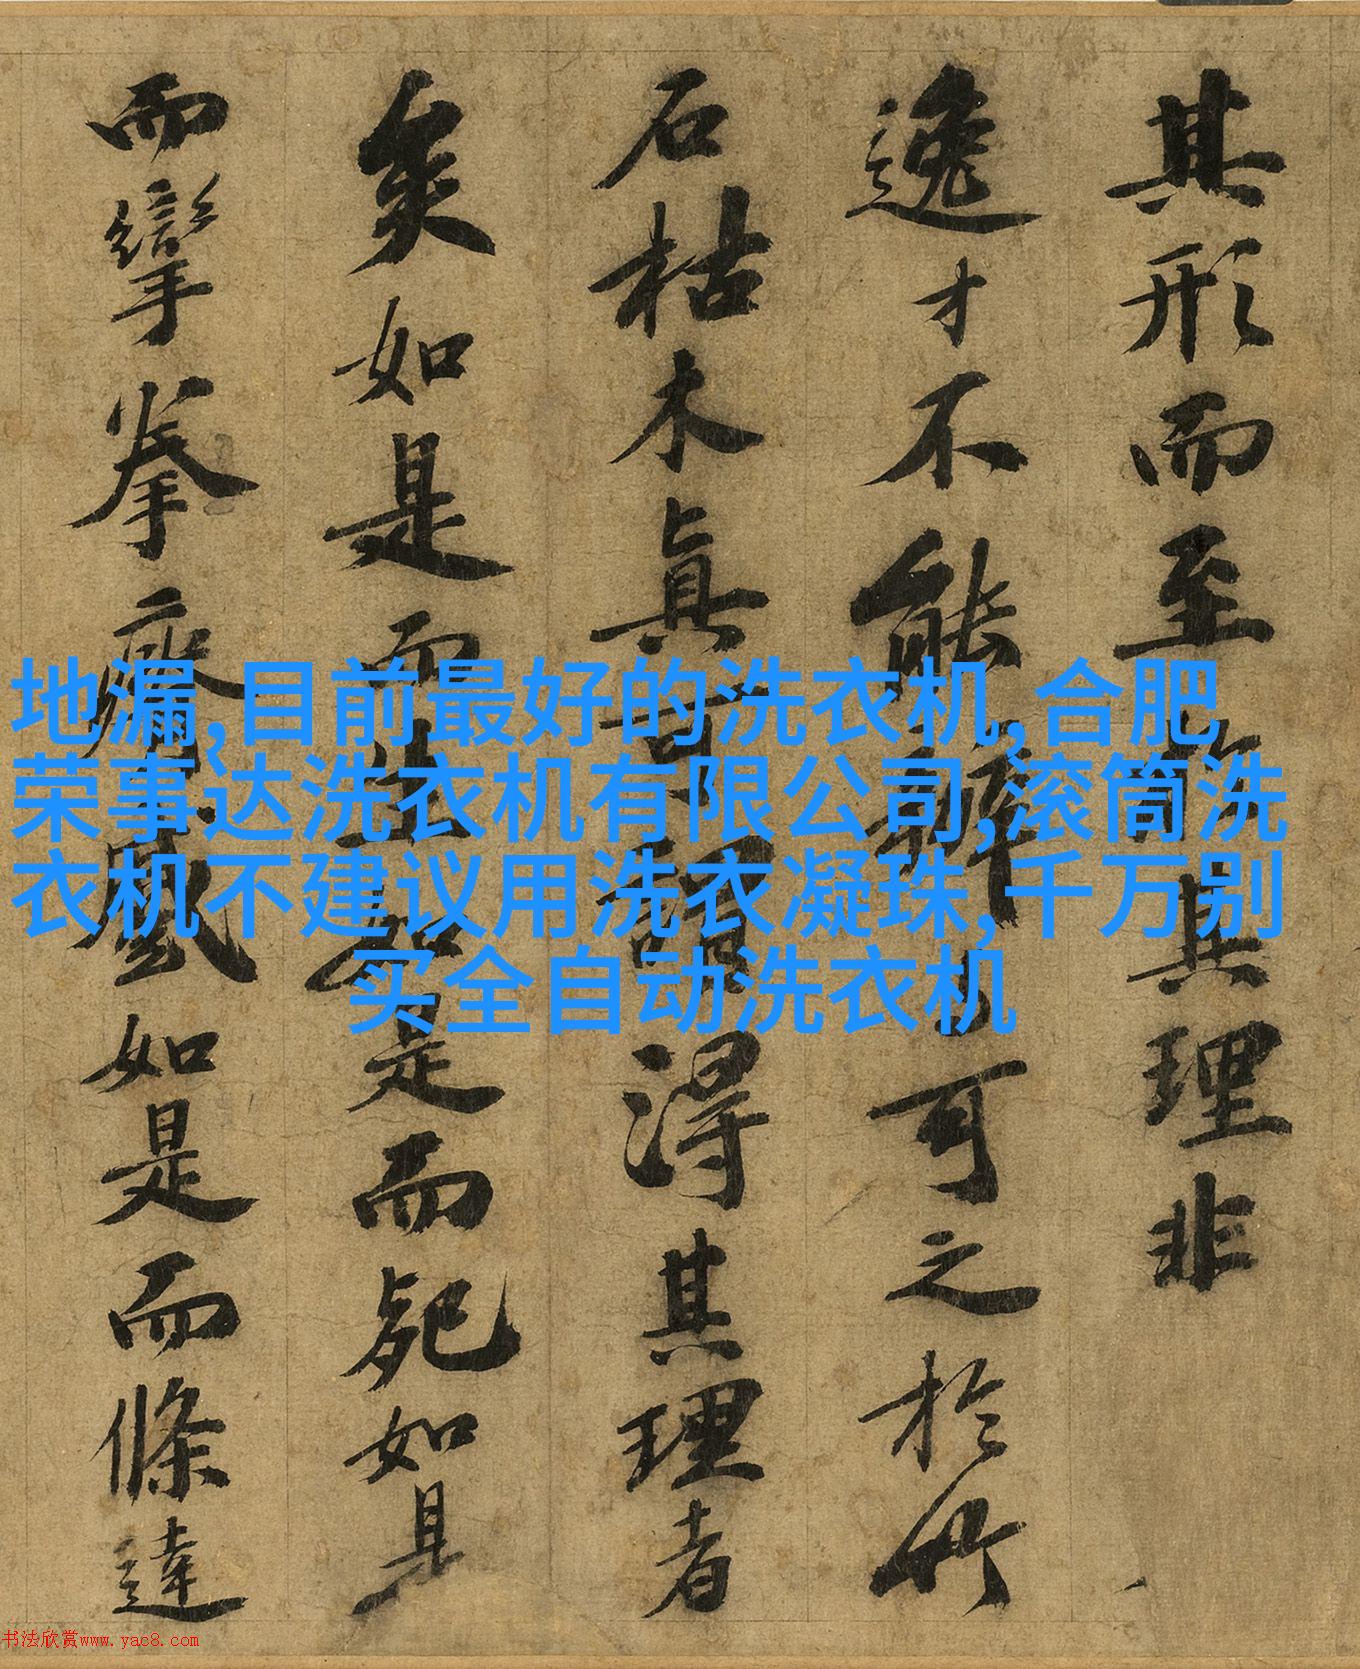 其形而至於其理非
逸才不能辨可之於竹
石枯木真可謂得其理者
矣如是而生如是而死如是
而攣拳瘠蹙如是而條達
地漏,目前最好的洗衣机,合肥
荣事达洗衣机有限公司,滚筒洗
衣机不建议用洗衣凝珠,千万别
买全自动洗衣机
书法欣赏www.yac8.com